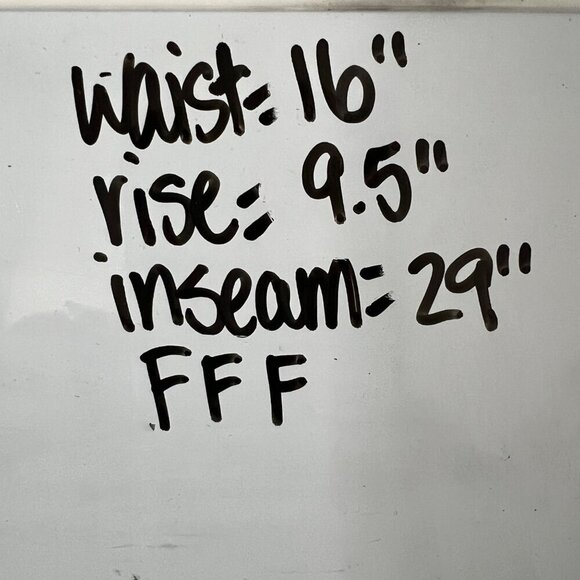 waist= 16"
rise= 9.5"
inseam= 29"
FFF